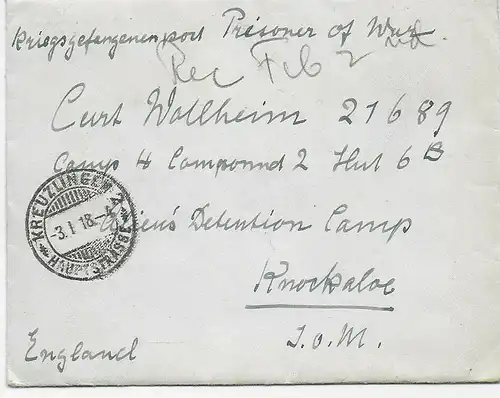 Kriegsgefangenenpost Prisoner of War
Rec Feb 2nd
Curt Wollheim 21689
Camp 4 Compound 2 Hut 6B
Alien's Detention Camp
Knockaloe
I.o.M.
England
KREUZLINGEN 2
-3.I.18.-4
HAUPTSTRASSE